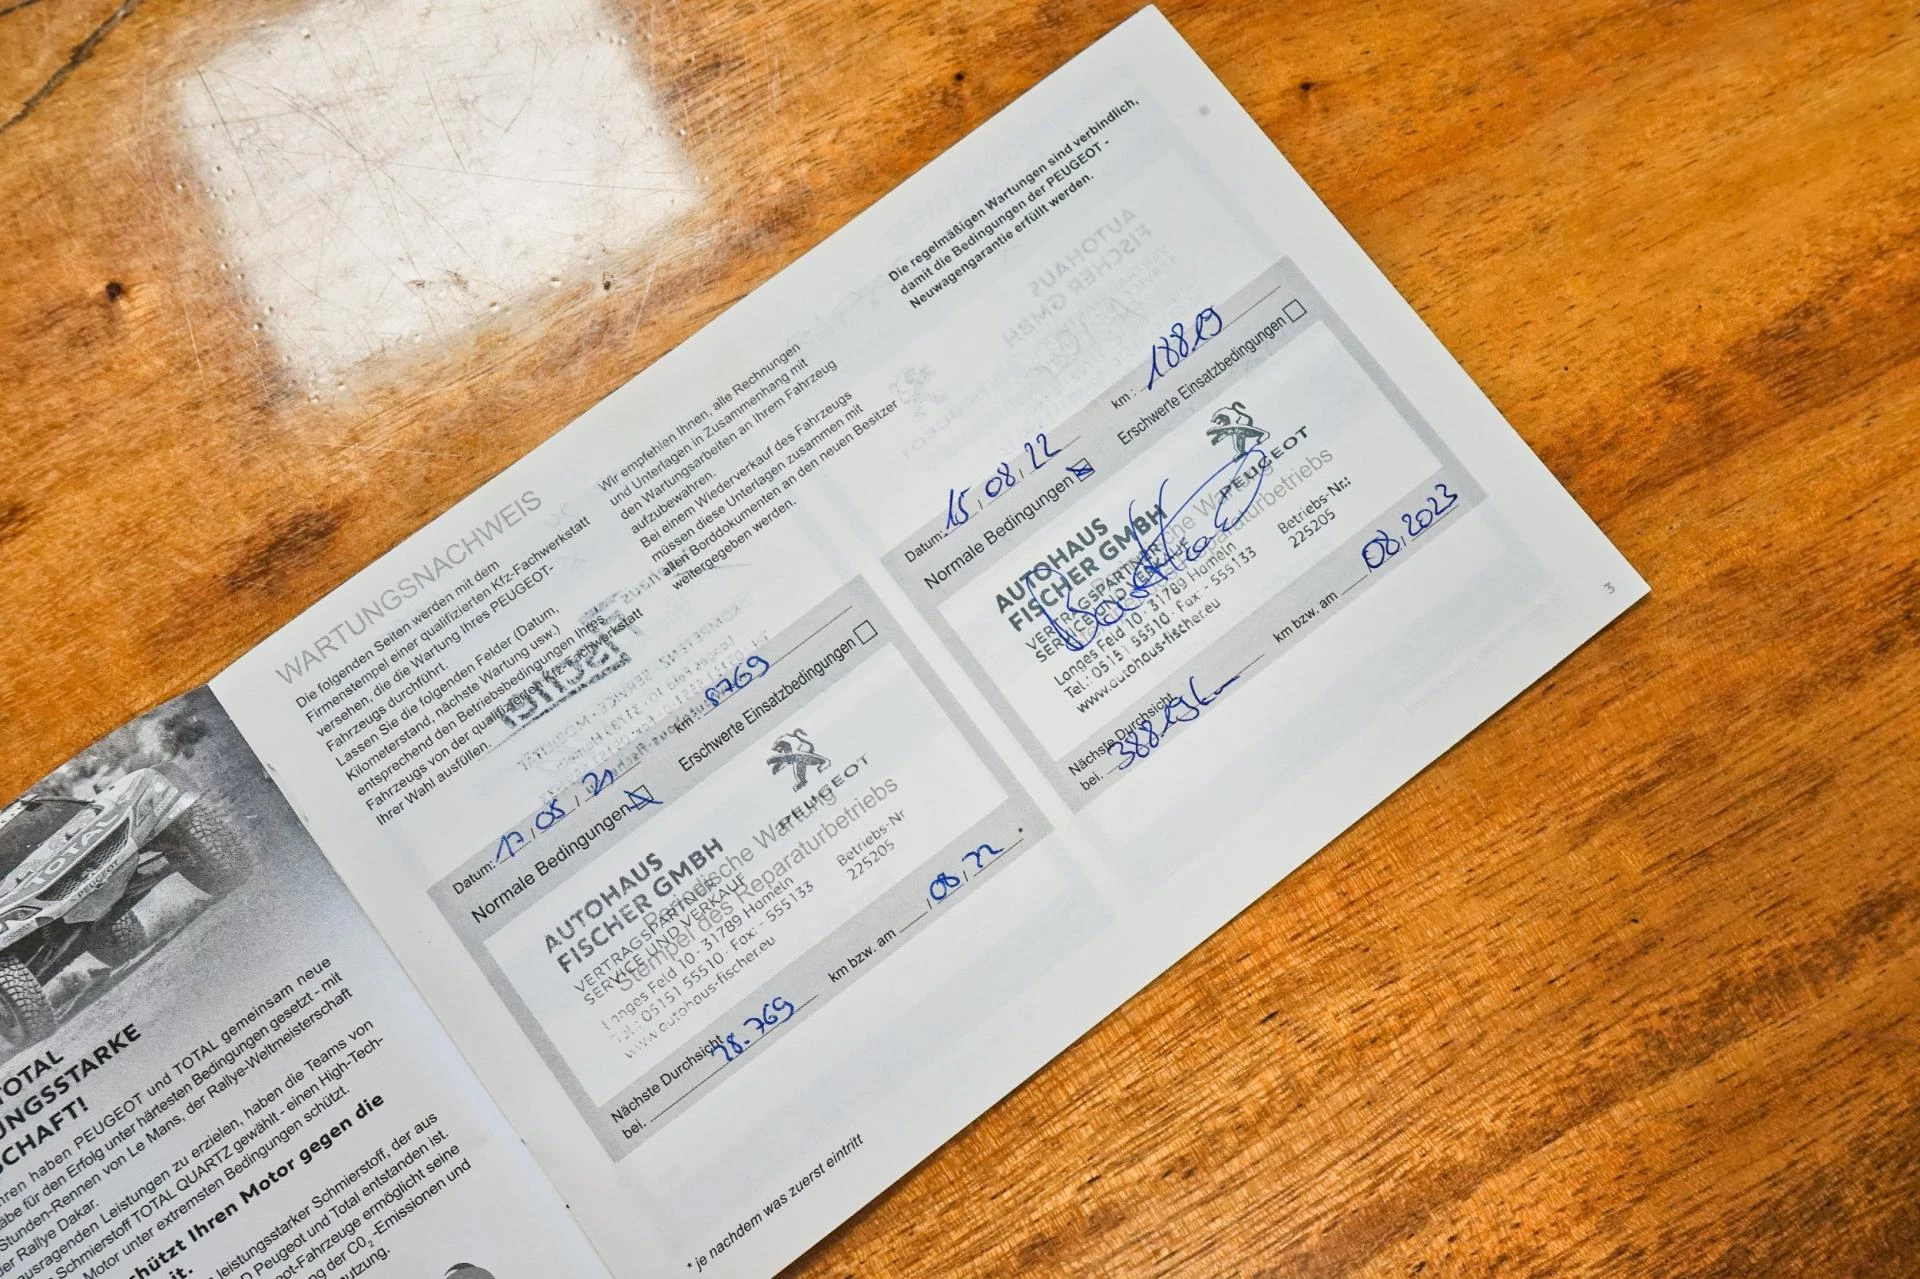 WARTUNGSNACHWEIS
Die folgenden Seiten werden mit dem
Firmenstempel einer qualifizierten Kfz-Fachwerkstatt
versehen, die die Wartung Ihres PEUGEOT-
Fahrzeugs durchführt.
Lassen Sie die folgenden Felder (Datum,
Kilometerstand, nächste Wartung usw.)
entsprechend den Betriebsbedingungen Ihres
Fahrzeugs von der qualifizierten Kfz-Fachwerkstatt
Ihrer Wahl ausfüllen.
Wir empfehlen Ihnen, alle Rechnungen
und Unterlagen in Zusammenhang mit
den Wartungsarbeiten an Ihrem Fahrzeug
aufzubewahren.
Bei einem Wiederverkauf des Fahrzeugs
müssen diese Unterlagen zusammen mit
allen Borddokumenten an den neuen Besitzer
weitergegeben werden.
Die regelmäßigen Wartungen sind verbindlich,
damit die Bedingungen der PEUGEOT -
Neuwagengarantie erfüllt werden.
Datum: 17 / 05 / 21 km : 8769
Normale Bedingungen Erschwerte Einsatzbedingungen
PEUGEOT
Periodische Wartung
Stempel des Reparaturbetriebs
AUTOHAUS
FISCHER GMBH
VERTRAGSPARTNER
SERVICE UND VERKAUF
Langes Feld 10 · 31789 Hameln
Tel.: 05151 55510 · Fax: - 555133
www.autohaus-fischer.eu
Betriebs-Nr
225205
Nächste Durchsicht
bei. 28.769 km bzw. am / 08 / 22 *
Datum: 15 / 08 / 22 km : 18819
Normale Bedingungen Erschwerte Einsatzbedingungen
PEUGEOT
AUTOHAUS
FISCHER GMBH
VERTRAGSPARTNER
SERVICE UND VERKAUF
Langes Feld 10 · 31789 Hameln
Tel.: 05151 55510 · Fax: - 555133
www.autohaus-fischer.eu
Betriebs-Nr.:
225205
Nächste Durchsicht
bei. 38819 km km bzw. am 08 / 2023
* je nachdem was zuerst eintritt
3
TOTAL
PEUGEOT
TOTAL
SCHAFT!
haben PEUGEOT und TOTAL gemeinsam neue
für den Erfolg unter härtesten Bedingungen gesetzt - mit
Stunden-Rennen von Le Mans, der Rallye-Weltmeisterschaft
der Rallye Dakar.
Leistungen zu erzielen, haben die Teams von
Schmierstoff TOTAL QUARTZ gewählt - einen High-Tech-
Motor unter extremsten Bedingungen schützt.
schützt Ihren Motor gegen die
leistungsstarker Schmierstoff, der aus
Peugeot und Total entstanden ist.
Fahrzeuge ermöglicht seine
der CO2-Emissionen und